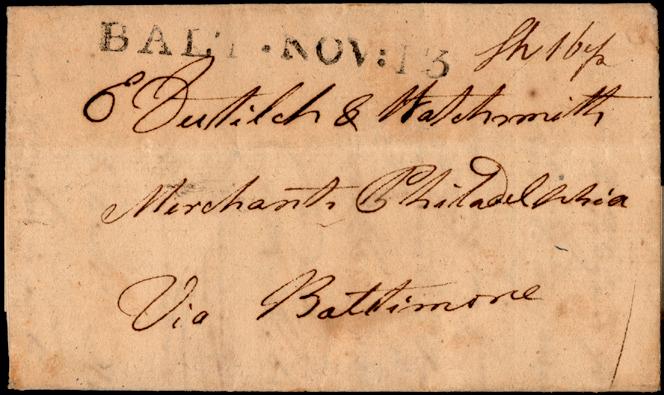 BALT. NOV: 13
E Dutilch & Watchsmith
Merchants Philadelphia
Via Baltimore